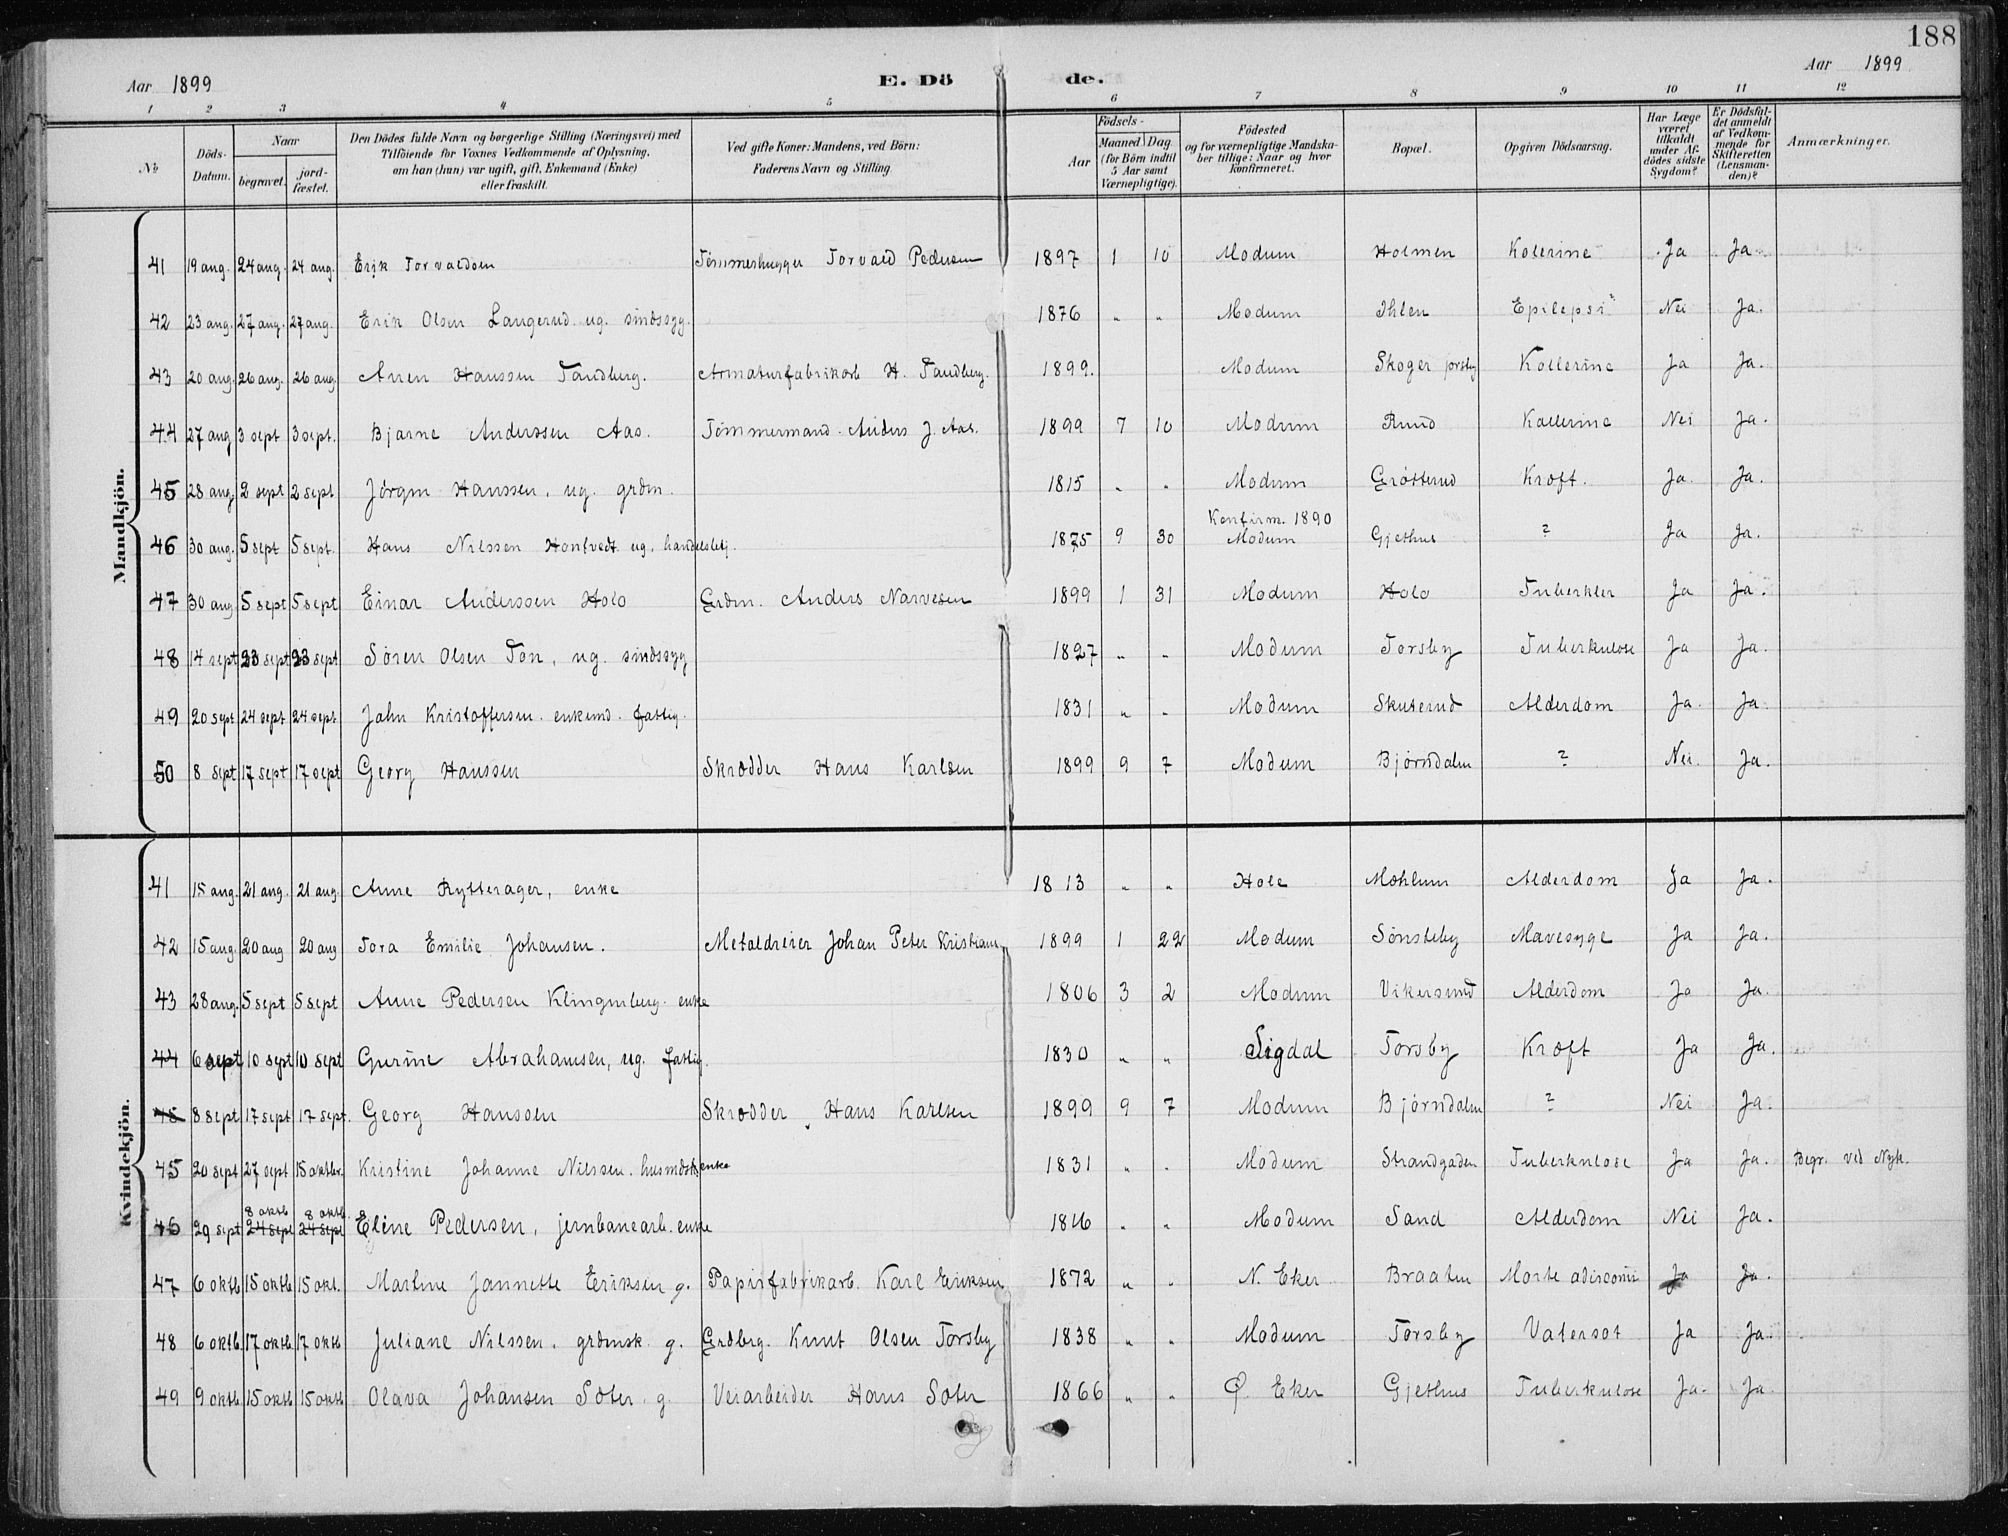 188
Aar 1899 E. Dö de. Aar 1899
1 2 3 4 5 6 7 8 9 10 11 12
№ Döds-Datum. Naar begravet. jord-fæstet. Den Dödes fulde Navn og borgerlige Stilling (Næringsvei) med Tilföiende for Voxnes Vedkommende af Oplysning, om han (hun) var ugift, gift, Enkemand (Enke) eller fraskilt. Ved gifte Koner: Mandens, ved Börn: Faderens Navn og Stilling. Födsels- Aar Maaned Dag. (for Börn indtil 5 Aar samt Værnepligtige). Födested og for værnepligtige Mandska-ber tillige: Naar og hvor konfirmeret. Bopæl. Opgiven Dödsaarsag. Har Læge været tilkaldt under Af-dödes sidste Sygdom? Er Dödsfal-det anmeldt af Vedkom-mende for Skifteretten (Lensman-den)? Anmærkninger.
Mandkjön.
41 19 aug. 24 aug. 24 aug. Erik Torvaldsen Tømmerhugger Torvald Pedersen 1897 1 10 Modum Holmen Kolerine Ja Ja.
42 23 aug. 27 aug. 27 aug. Erik Olsen Langerud ug. sindssyg. 1876 " " Modum Ihlen Epilepsi? Nei Ja.
43 20 aug. 26 aug. 26 aug. Anen Hanssen Tandberg. Armaturfabrikarb H. Tandberg. 1899. Modum Skoger Kollerine Ja Ja.
44 27 aug 3 sept 3 sept. Bjarne Anderssen Aas. Tømmermand Anders J. Aas. 1899 7 10 Modum Ruud Kollerine Nei Ja.
45 28 aug 2 sept 2 sept Jørgen Hanssen, ug. grdm. 1815 " " Modum Grøtterud Kræft. Ja. Ja.
46 30 aug. 5 sept 5 sept. Hans Nilssen Honfvedt ug. handelsbetj. 1875 9 30 Konfirm. 1890 Modum Gjethus ? Ja Ja.
47 30 aug 5 sept 5 sept Einar Anderssen Holo Grdm. Anders Narvesen 1899 1 31 Modum Holo Tuberkler Ja Ja.
48 14 sept 23 sept 23 sept Søren Olsen Ton, ug. sindssyg 1827 " " Modum Torsby Tuberkulose Ja Ja.
49 20 sept 24 sept 24 sept. Jahn Kristoffersen. enkemd. fattig. 1831 " " Modum Skuterud Alderdom Ja. Ja
50 8 sept 17 sept 17 sept Georg Hanssen Skrædder Hans Karlsen 1899 9 7 Modum Bjørndalen ? Nei. Ja.
Kvindekjön.
41 15 aug. 21 aug. 21 aug Anne Rytterager, enke 1813 " " Hole Mæhlum Alderdom Ja Ja.
42 15 aug. 20 aug 20 aug Tora Emilie Johansen. Metaldreier Johan Peter Kristians. 1899 1 22 Modum Sønsteby Mavesyge Ja Ja.
43 28 aug. 5 sept 5 sept Anne Pedersen Klingenberg. enke 1806 3 2 Modum Vikersund Alderdom Ja Ja.
44 6 sept 10 sept 10 sept Gurine Abrahamsen, ug. fattig. 1830 " " Sigdal Torsby Kræft Ja Ja.
45 8 sept 17 sept 17 sept. Georg Hanssen Skrædder Hans Karlsen 1899 9 7 Modum Bjørndalen ? Nei Ja.
45 20 sept 27 sept 15 oktbr. Kristine Johanne Nilssen. husmdsk. enke 1831 " " Modum Strandgaden Tuberkulose Ja Ja. Begr. ved Nyk.
46 29 sept 8 oktb 24 sept 8 oktb. 24 sept Eline Pedersen, jernbanearb. enke 1816 " " Modum Sand Alderdom Nei Ja.
47 6 oktb 15 oktb 15 okt. Martine Jannette Eriksen g. Papirfabrikarb. Karl Eriksen 1872 " " N. Eker Braaten Ja Ja.
48 6 oktb. 17 oktb 17 oktb Juliane Nilssen, grdmsk. g. Grdbrg. Knut Olsen Torsby 1838 " " Modum Torsby Vatersot Ja Ja.
49 9 oktb. 15 oktb 15 oktb Olava Johansen Sæter g. Veiarbeider Hans Sæter 1866 " " Ø. Eker Gjethus Tuberkulose Ja. Ja.